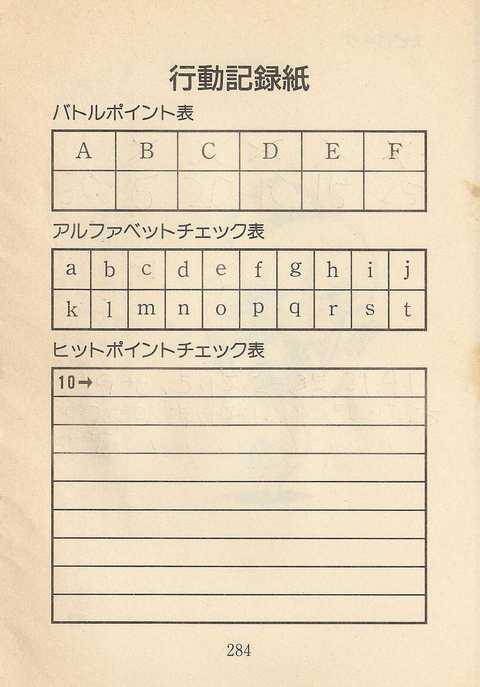 行動記録紙
バトルポイント表
A B C D E F
アルファベットチェック表
a b c d e f g h i j
k l m n o p q r s t
ヒットポイントチェック表
10→
284